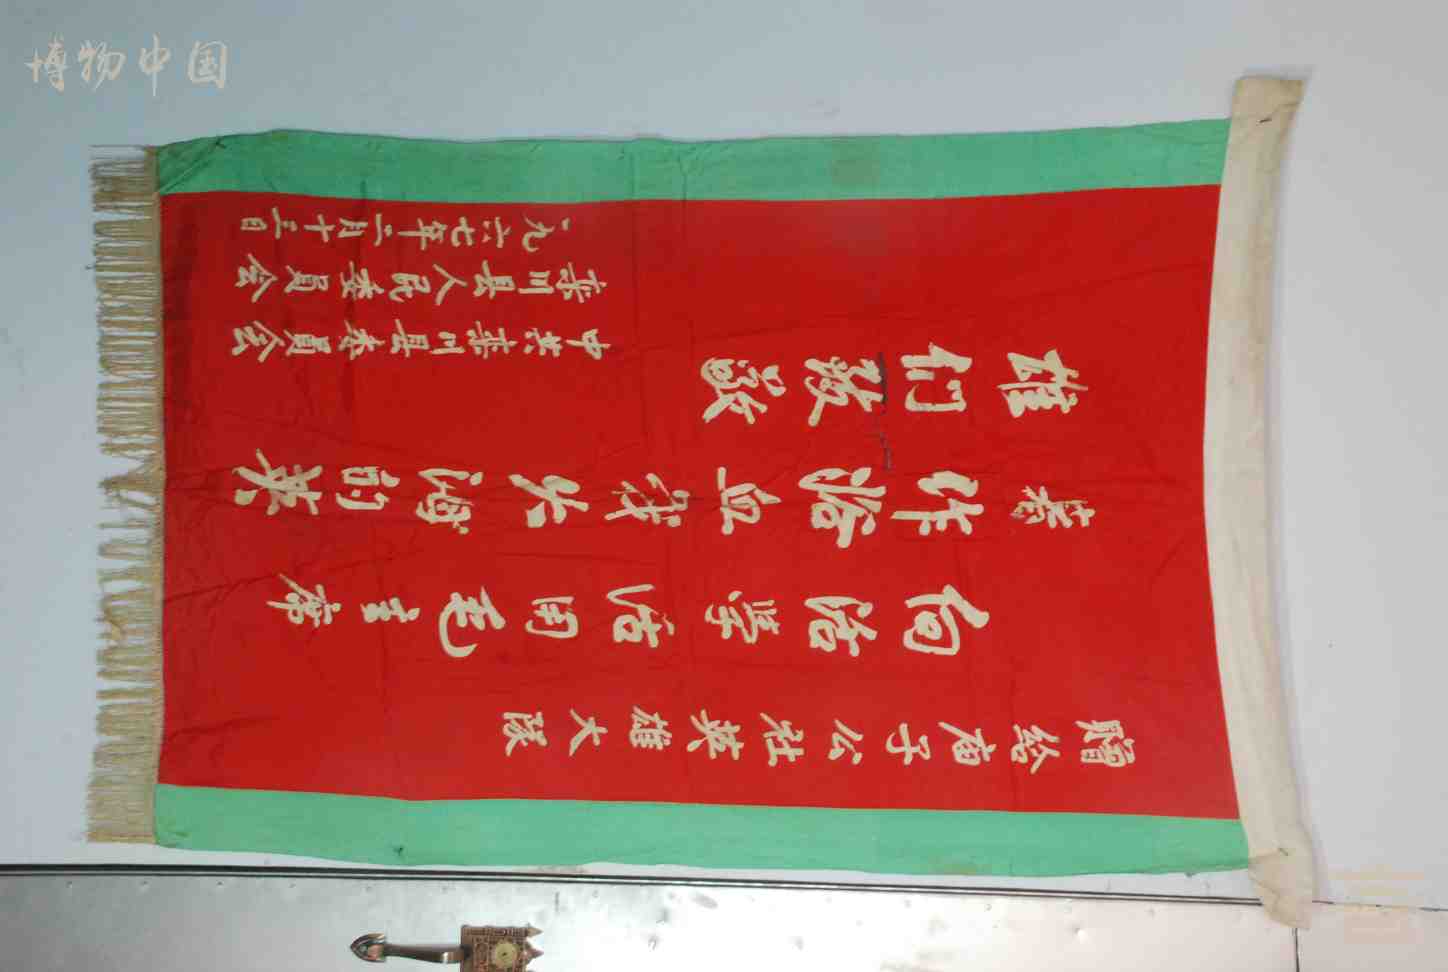 博物中国
贈给庙子公社英雄大隊
向活学活用毛主席
著作血火海的英
雄們致敬
中共栾川县委员会
栾川县人民委员会
一九六七年二月十三日